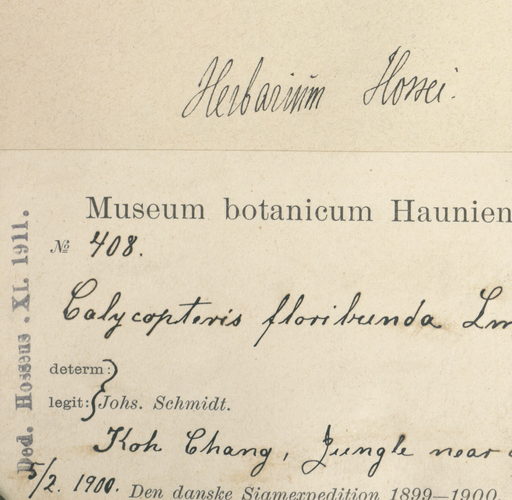 Herbarium Hossei.
Museum botanicum Haunien
№ 408.
Calycopteris floribunda Lm
determ:
legit: Johs. Schmidt.
Koh Chang, Jungle near
5/2. 1900. Den danske Siamexpedition 1899—1900.
Ded. Hosseus. XI. 1911.